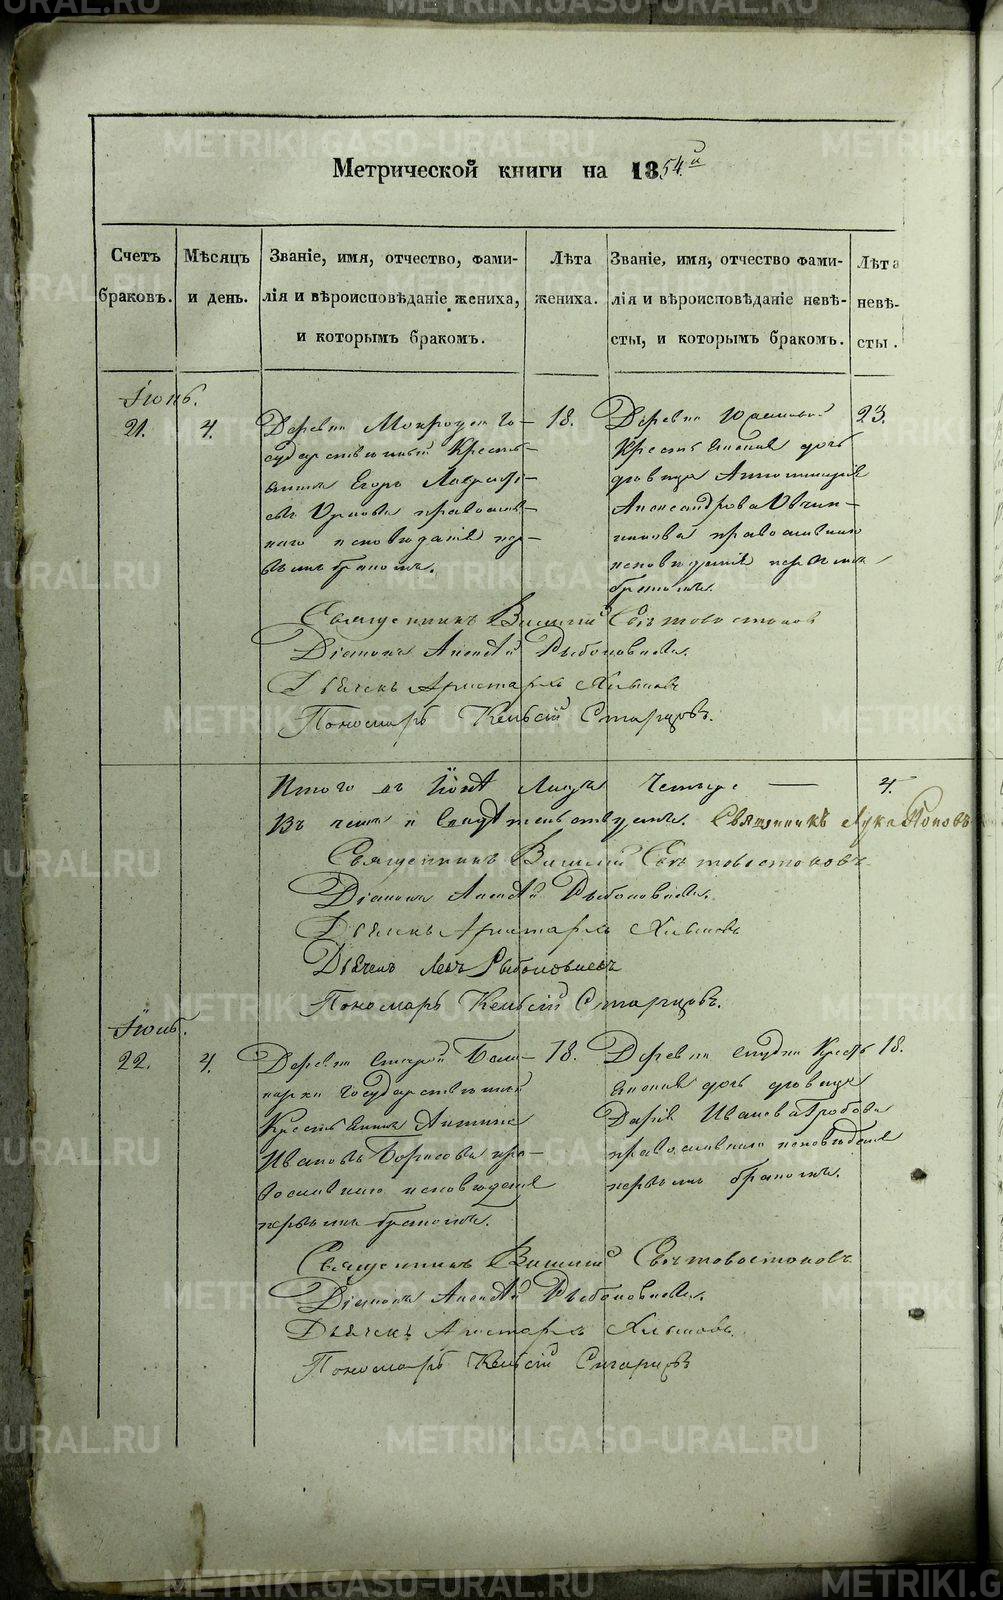 METRIKI.GASO-URAL.RU
Метрической книги на 1854й
Счетъ браковъ.
Мѣсяцъ и день.
Званіе, имя, отчество, фами-
лія и вѣроисповѣданіе жениха,
и которымъ бракомъ.
Лѣта жениха.
Званіе, имя, отчество фами-
лія и вѣроисповѣданіе невѣ-
сты, и которымъ бракомъ.
Лѣта невѣ-
сты.
21.
4.
Деревни го-
сударственный Кресть-
янинъ Егоръ
православ-
наго исповѣданія пер-
вымъ бракомъ.
18.
Деревни
Крестьянина дочь
дѣвица
Александрова Овчин-
никова православнаго
исповѣданія первымъ
бракомъ.
23.
Священникъ Василій Свѣтовостоковъ
Діаконъ Алексѣй Рыболовлевъ.
Дьячекъ Аристархъ
Пономарь Старцовъ.
Итого въ четыре — 4.
Въ чемъ и свидѣтельствуемъ. Священникъ Лука Поповъ
Священникъ Василій Свѣтовостоковъ
Діаконъ Алексѣй Рыболовлевъ.
Дьячекъ Аристархъ
Дьячекъ Левъ Рыболовлевъ
Пономарь Старцовъ.
22.
4.
Деревни
государственный
Крестьянинъ
Ивановъ Борисовъ пра-
вославнаго исповѣданія
первымъ бракомъ.
18.
Деревни Кресть
янина дочь дѣвица
Дарія Иванова
православнаго исповѣданія
первымъ бракомъ.
18.
Священникъ Василій Свѣтовостоковъ
Діаконъ Алексѣй Рыболовлевъ.
Дьячекъ Аристархъ
Пономарь Старцовъ